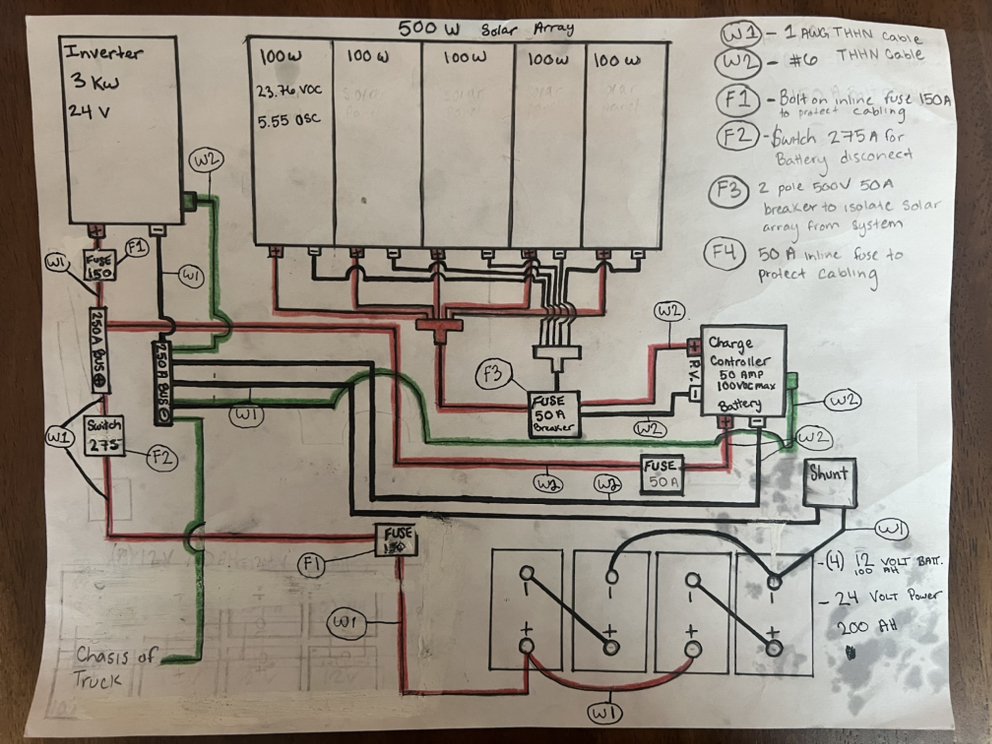 500 W Solar Array
Inverter
3 Kw
24 V
100 W
23.76 VOC
5.55 OSC
100 W
100 W
100 W
100 W
W1 - 1 AWG THHN Cable
W2 - #6 THHN Cable
F1 - Bolt on inline fuse 150A
to protect cabling
F2 - Switch 275 A for
Battery disconect
F3 2 pole 500V 50A
breaker to isolate solar
array from system
F4 50 A inline fuse to
protect cabling
W2
+
-
+ - + - + - + - + -
FUSE
150
F1
W1
W1
250A BUS +
250A BUS -
W1
Switch
275
F2
W1
F3
FUSE
50 A
Breaker
W2
W2
+
P.V.
-
Charge
Controller
50 AMP
100VDC max
Battery
+ -
W2
W2
W2
W2
FUSE
50A
Shunt
W1
FUSE
150
F1
W1
- - - -
+ + + +
W1
- (4) 12 VOLT BATT.
100 AH
- 24 VOLT Power
200 AH
Chasis of
Truck